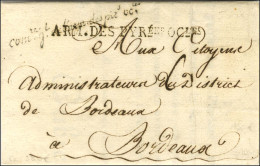 ARM. DES PYRÉNÉES OC.LES
Aux Citoyens
Administrateurs du District
de Bordeaux
à Bordeaux